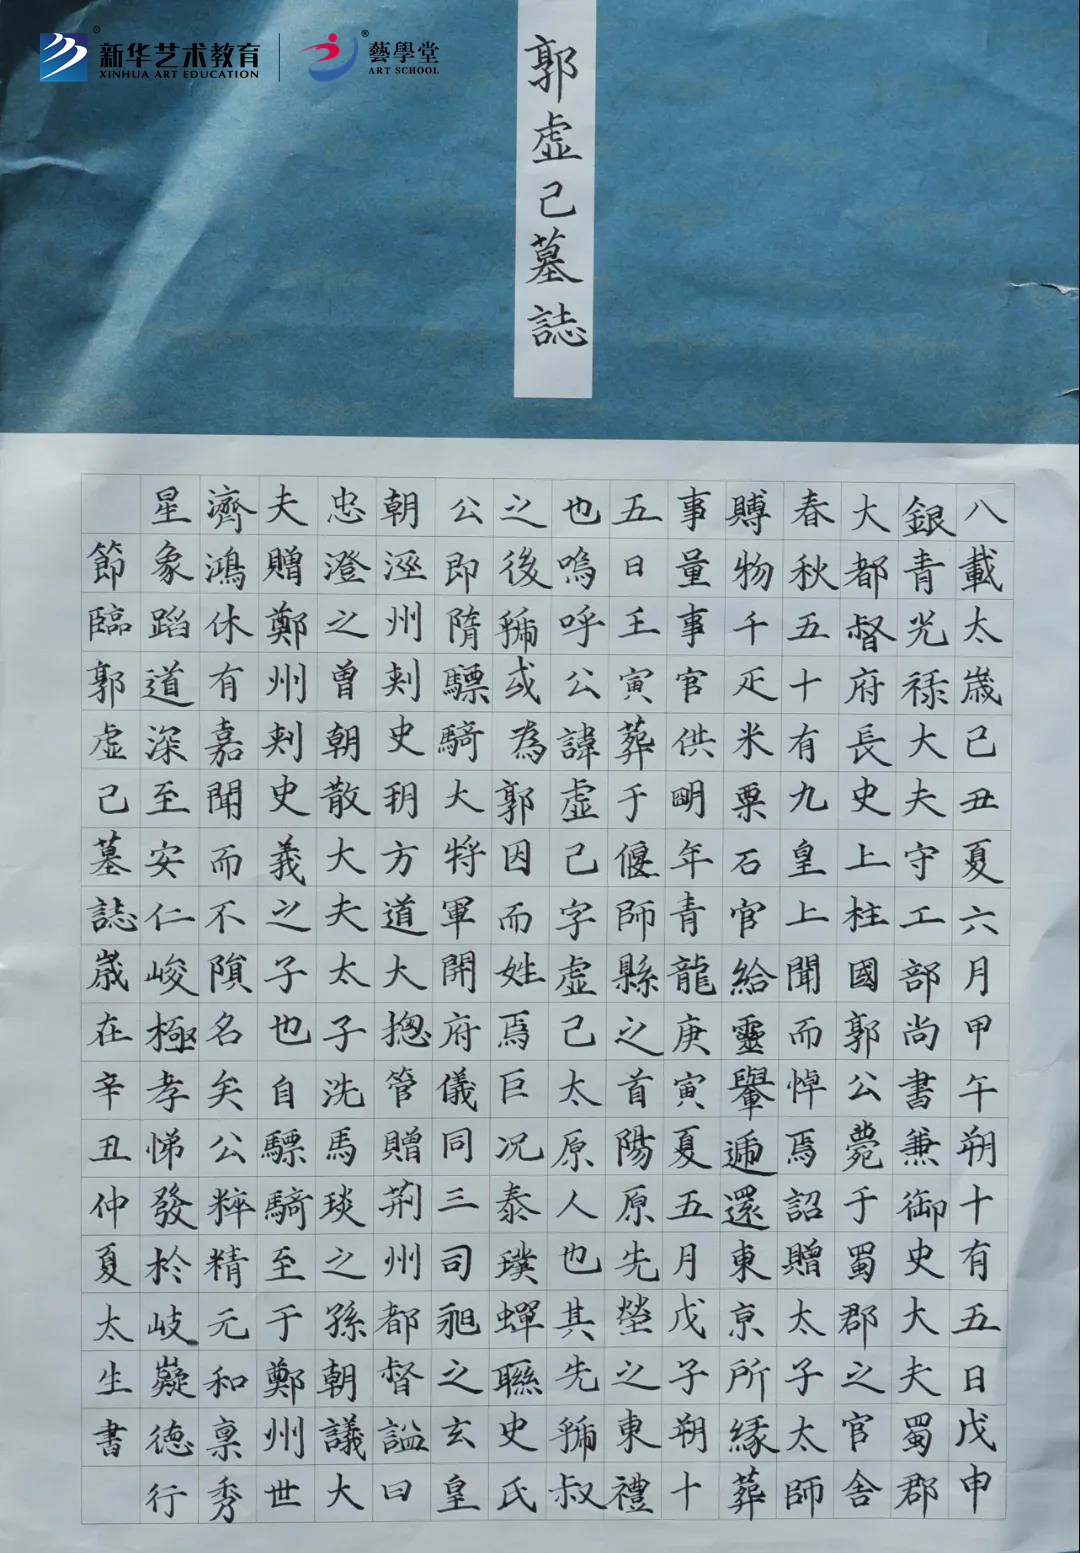 新华艺术教育
XINHUA ART EDUCATION
藝學堂
ART SCHOOL
郭虚己墓誌
八載太歲己丑夏六月甲午朔十有五日戊申
銀青光禄大夫守工部尚書兼御史大夫蜀郡
大都督府長史上柱國郭公薨于蜀郡之官舍
春秋五十有九皇上聞而悼焉詔贈太子太師
賻物千疋米粟石官給靈轝遞還東亰所緣葬
事量事官供明年青龍庚寅夏五月戊子朔十
五日壬寅葬于偃師縣之首陽原先塋之東禮
也嗚呼公諱虚己字虚己太原人也其先虢叔
之後虢或為郭因而姓焉巨况泰璞蟬聯史氏
公即隋驃騎大將軍開府儀同三司昶之玄皇
朝涇州刾史朔方道大揔管贈荆州都督謚曰
忠澄之曾朝散大夫太子洗馬琰之孫朝議大
夫贈鄭州刾史義之子也自驃騎至于鄭州世
濟鴻休有嘉聞而不隕名矣公粹精元和稟秀
星象蹈道深至安仁峻極孝悌發於岐嶷德行
節臨郭虚己墓誌歲在辛丑仲夏太生書